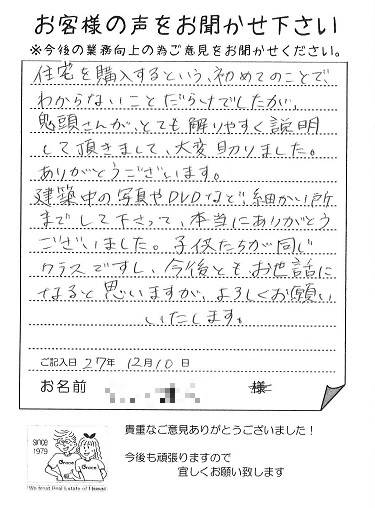 お客様の声をお聞かせ下さい
※今後の業務向上の為ご意見をお聞かせください。
住宅を購入するという、初めてのことで、
わからないことだらけでしたが、
鬼頭さんが、とても解りやすく説明
して頂きまして、大変助りました。
ありがとうございます。
建築中の写真やDVDなど、細かい所
までして下さって、本当にありがとう
ございました。子供たちが同じ
クラスですし、今後ともお世話に
なると思いますが、よろしくお願い
いたします。
ご記入日 27年 12月10日
お名前 様
貴重なご意見ありがとうございました！
今後も頑張りますので
宜しくお願い致します
SINCE
1979
Grace
Grace
We trust Real Estate of Hawaii